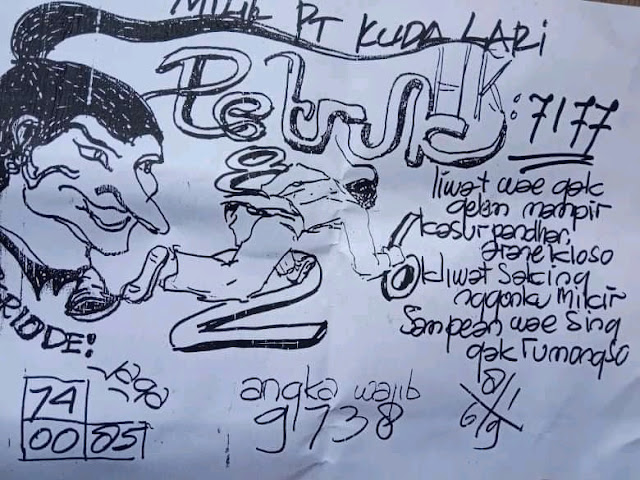 MILIK PT KUDA LARI
HK: 7177
liwat wae gak
gelem mampir
kasur pandhan,
arane kloso
kliwat saking
nggonku mikir
Sampean wae sing
gak rumongso
2
RIODE:
74
00 85
angka wajib
9738
8/1
6/9